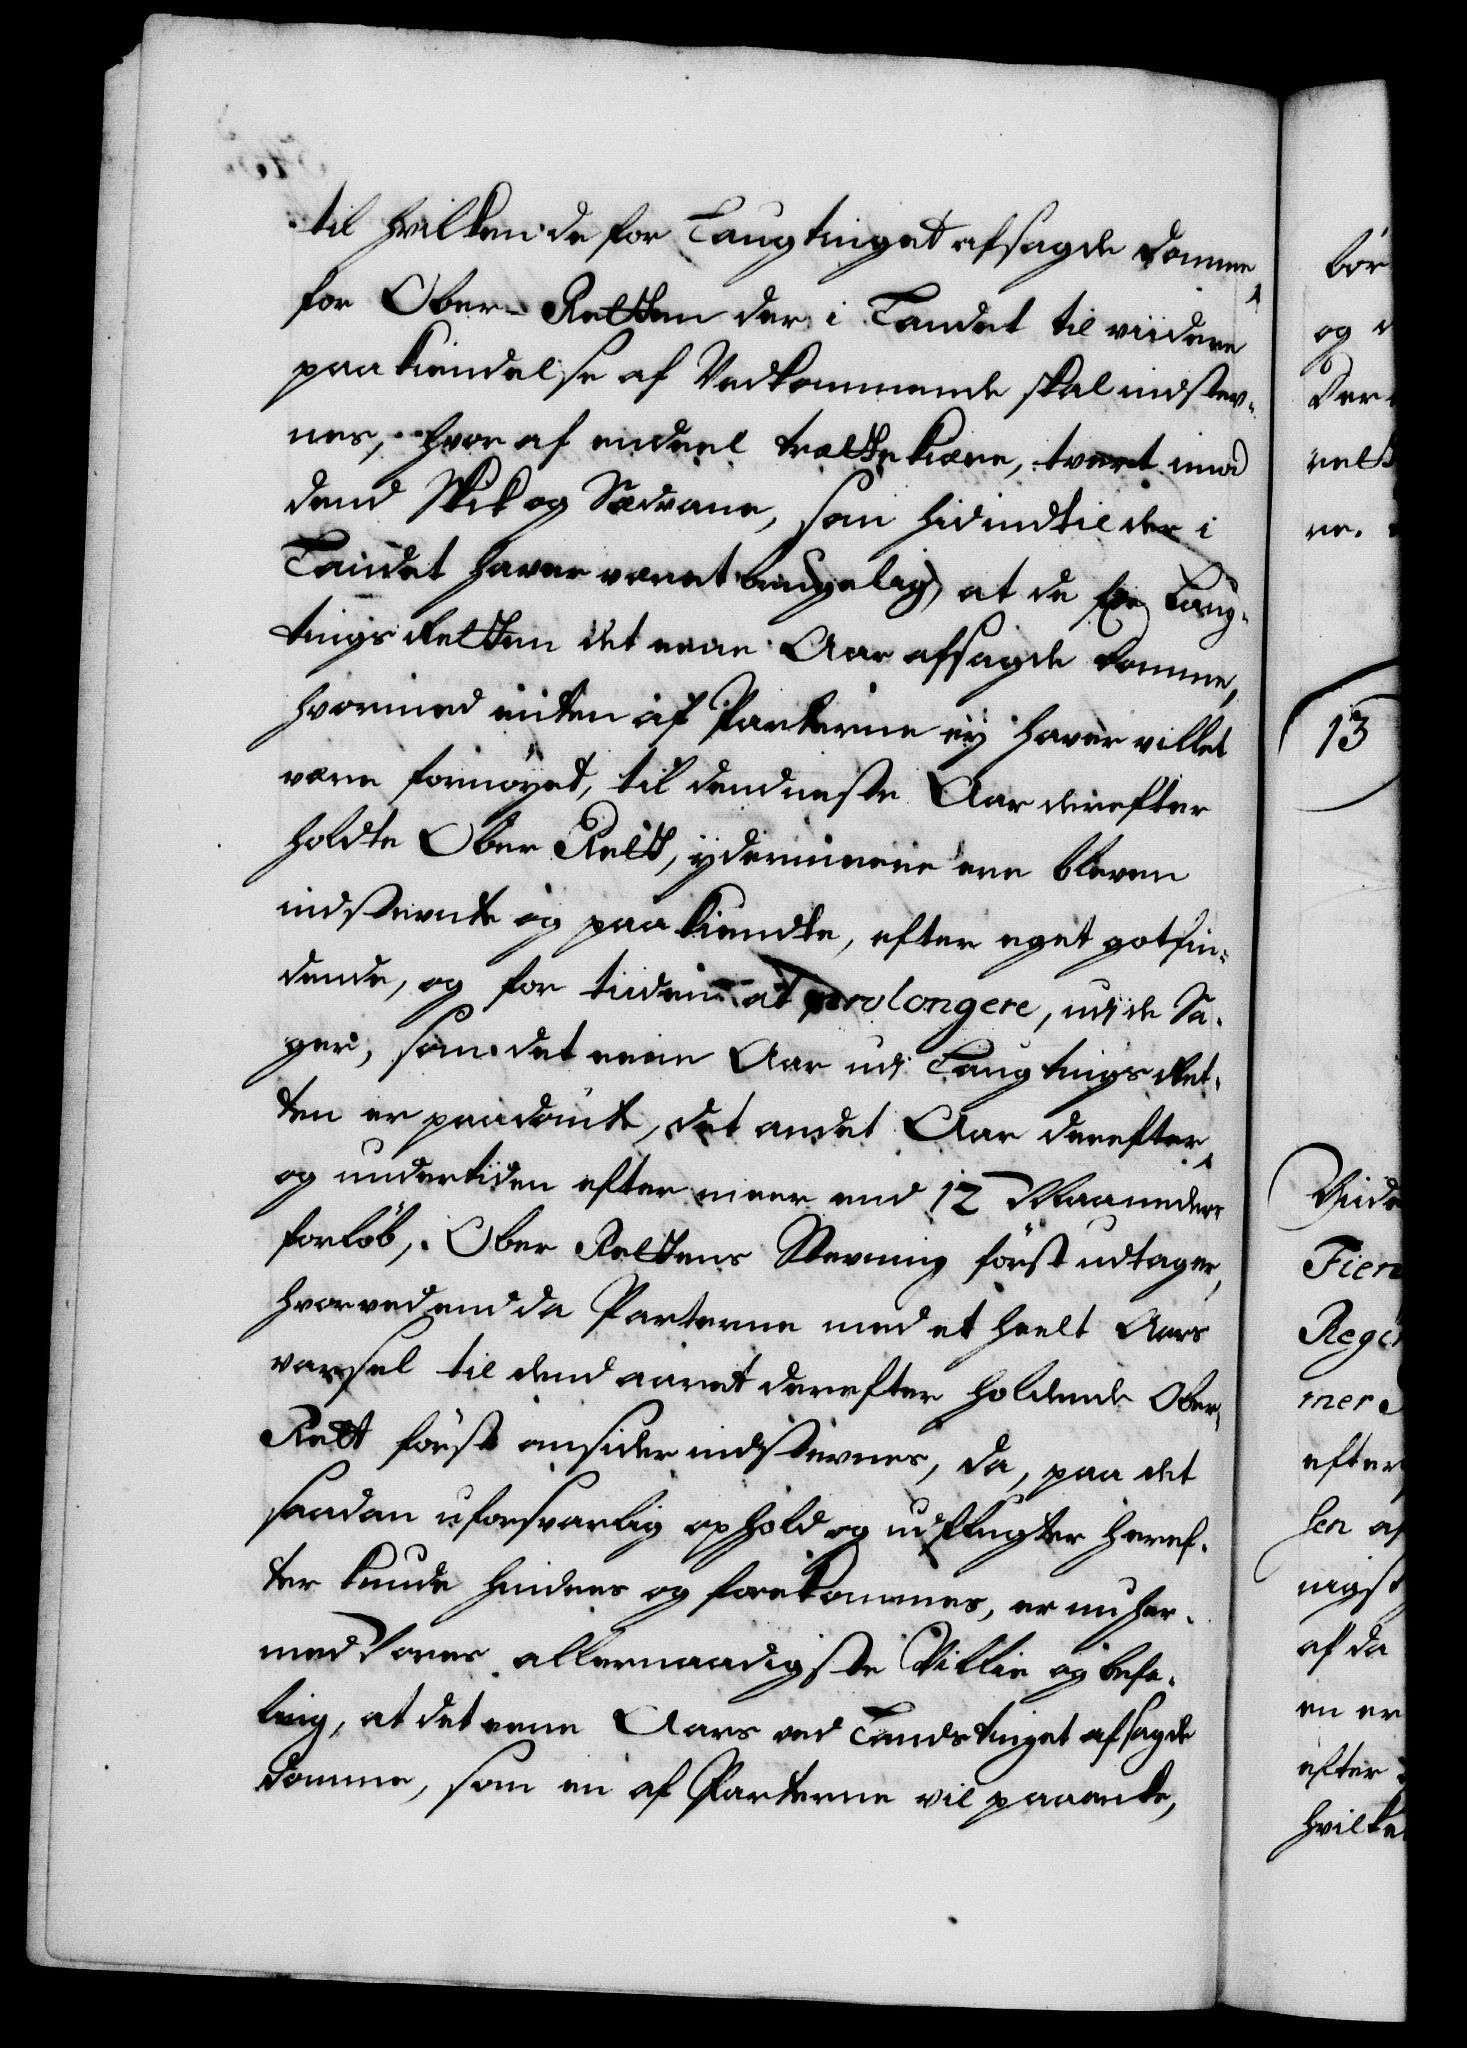 til hvilken de for Laugtinget afsagde Domme
for Ober-Retten der i Landet til viidere
paakiendelse af Vedkommende skal indstev-
nes, hvor af endeel trættekiære, tvert imod
dend Skik og Sædvane, som hidindtil der i
Landet haver været brugelig, at de for Laug-
tings Retten det eene Aar afsagde Domme,
hvormed enten af Parterne ey haver villet
være fornøyet, til dend neste Aar derefter
holdte Ober Rett, ydermeere ere bleven
indstevnte og paakiendte, efter eget gotfin-
dende, og for tiiden at prolongere, udj de Sa-
ger, som det eene Aar udj Laugtings Ret-
ten er paadømte, det andet Aar derefter
og undertiden efter meer end 12 Maaneders
forløb, Ober Rettens Stevning først udtager,
hvorved endda Parterne med et heelt Aars
varsel til dend aaret derefter holdende Ober-
Rett først omsider indstevnes, da, paa det
saadan uforsvarlig ophold og udflugter heref-
ter kunde hindres og forekommes, er nu her-
med Vores allernaadigste Villie og befa-
ling, at det eene Aars ved Landstinget afsagde
Domme, som en af Parterne vil paaanke,
bør
og
Der
rett
re.
13
Viid
Fier
Rege
mer
efter
sen af
nigst
af da
en er
efter
hvilke